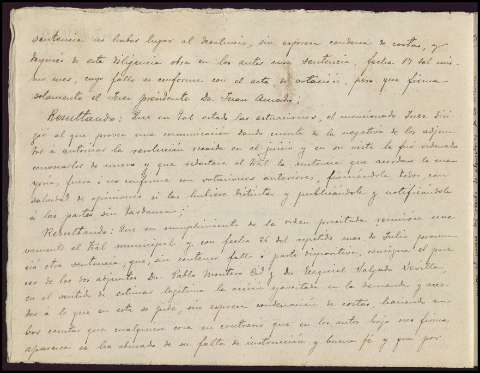 sentencia no haber lugar al desahucio, sin expresa condena de costas, y
después de esta diligencia obra en los autos una sentencia, fecha 17 del mis-
mo mes, cuyo fallo es conforme con el acta de votación, pero que firma
solamente el Juez presidente Dn Juan Amado;
Resultando: Que en tal estado las actuaciones, el mencionado Juez diri-
gió al que provee una comunicación dando cuenta de la negativa de los adjun-
tos a autorizar la resolución recaída en el juicio y en su vista le fué ordenado
convocarlos de nuevo y que redactase el Tbl la sentencia que acordara la ma-
yoría, fuera o no conforme con votaciones anteriores, firmándola todos con
salvedad de opiniones si las hubiere distintas y publicándola y notificándola
á las partes sin tardanza;
Resultando: Que en cumplimiento de la orden precitada reunióse nue-
vamente el Tbl municipal y con fecha 26 del repetido mes de Julio pronun-
ció otra sentencia, que, sin contener fallo ó parte dispositiva, consigna el pare-
cer de los dos adjuntos Dn Pablo Montero y Dn Ezequiel Salgado Sevilla,
en el sentido de estimar legítima la acción ejercitada en la demanda y acce-
der á lo que en esta se pide, sin expresa condenación de costas, haciendo am-
bos constar que cualquiera cosa en contrario que en los autos bajo sus firmas
aparezca se ha abusado de su falta de instrucción y buena fé y que por